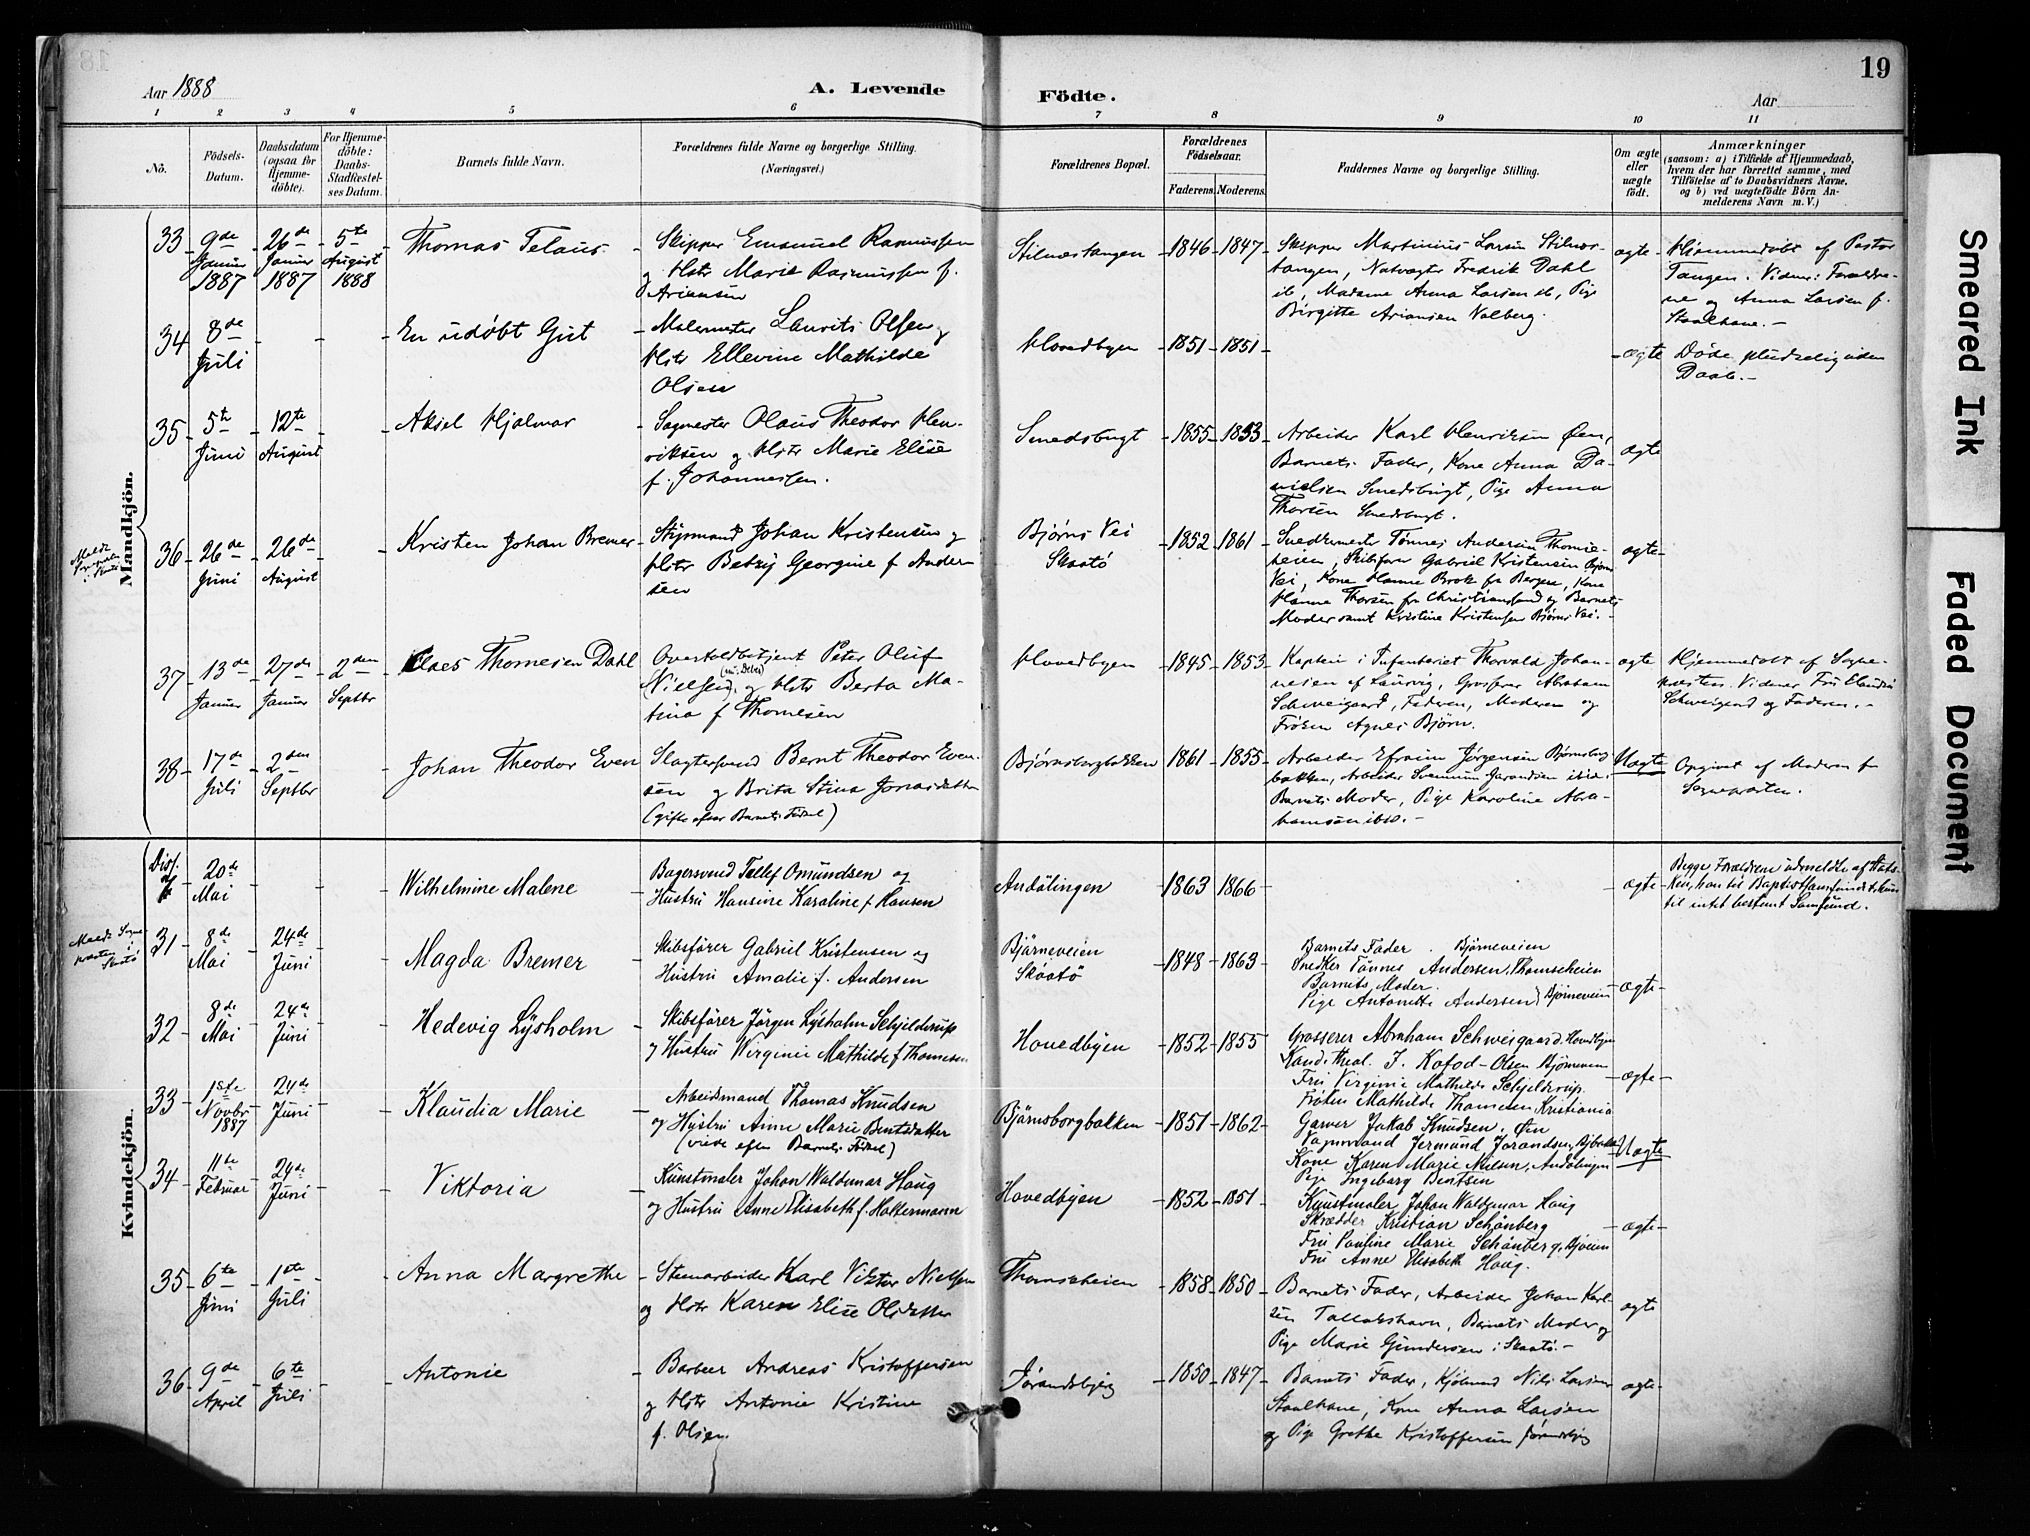 Aar 1888
A. Levende
Födte.
Aar
19
1 2 3 4 5 6 7 8 9 10 11
No.
Födsels-
Datum.
Daabsdatum
(ogsaa for
Hjemme-
döbte).
For Hjemme-
döbte:
Daabs-
Stadfæstel-
ses Datum.
Barnets fulde Navn.
Forældrenes fulde Navne og borgerlige Stilling.
(Næringsvei.)
Forældrenes Bopæl.
Forældrenes
Födselsaar.
Faderens. Moderens.
Faddernes Navne og borgerlige Stilling.
Om ægte
eller
uægte
födt.
Anmærkninger
(saasom: a) i Tilfælde af Hjemmedaab,
hvem der har forrettet samme, med
Tilföielse af to Daabsvidners Navne,
og b) ved uægtefödte Börn An-
melderens Navn m. V.)
Mandkjön.
33 9de Januar 1887
26de Januar 1887
5te August 1888
Thomas Telaus
Skipper Emanuel Rasmussen
og Hstr Marie Rasmussen f.
Ariansen
Stilnestangen
1846 1847
Skipper Martinius Larsen Stilnes-
tangen, Natvagter Fredrik Dahl
ib, Madame Anna Larsen ib, Pige
Birgitte Ariansen Valberg.
ægte
Hjemmedøbt af Pastor
Tangen. Vidner: Forældre-
ne og Anna Larsen f.
Staalhane.
34 8de Juli
En udøbt Gut
Malermester Laurits Olsen og
Hstr Ellevine Mathilde
Olsen
Hovedbyen
1851 1851
ægte
Døde pludselig uden
Daab.
35 5te Juni
12te August
Aksel Hjalmar
Sagmester Olaus Theodor Hen-
riksen og Hstr Marie Elise
f. Johannessen.
Smedsbugt
1855 1853
Arbeider Karl Henriksen Øen,
Barnets Fader, Kone Anna Da-
nielsen Smedsbugt, Pige Anna
Thorsen Smedsbugt.
ægte
36 26de Juni
26de August
Kristen Johan Bremer
Styrmand Johan Kristensen og
Hstr Betzy Georgine f Ander-
sen
Bjørns Vei
Skaatø
1852 1861
Snedkermester Tønnes Andersen Thomes-
heien, Skibsfører Gabriel Kristensen Bjørns
Vei, Kone Hanne Brok fra Bergen, Kone
Hanne Thorsen fra Christianssand og Barnets
Moder samt Kristine Kristensen Bjørns Vei.
ægte
37 13de Januar
27de Januar
2den Septbr
Claes Thomesen Dahl
Overtoldbetjent Peter Oluf
Nielsen og Hstr Berta Ma-
tina f Thomesen
Hovedbyen
1845 1853
Kaptein i Infanteriet Thorvald Johan-
nesen af Laurvig, Grosserer Abraham
Schweigaard, Faderen, Moderen og
Frøken Agnes Bjørn.
ægte
Hjemmedøbt af Sogne-
præsten. Vidner Fru Claudia
Schweigaard og Faderen.
38 17de Juli
2den Septbr
Johan Theodor Even
Slagtersvend Bernt Theodor Even-
sen og Brita Stina Jonasdatter
(gifte efter Barnets Fødsel)
Bjørnsborgbakken
1861 1855
Arbeider Efraim Jørgensen Bjørnsborg-
bakken, Arbeider ibid.
Barnets Moder, Pige Karoline Abra-
hamsen ibid.
Uægte
Opgivet af Moderen f
Sognepræsten.
Kvindekjön.
Diss. 20de Mai
Wilhelmine Malene
Bagersvend Tellef Omundsen og
Hustru Hansine Karoline f Hansen
Andölingen
1863 1866
ægte
Begge Forældrene udmeldte af Stats-
kirken, han til Baptistsamfundet, hun
til intet bestemt Samfund.
31 8de Mai
24de Juni
Magda Bremer
Skibsförer Gabriel Kristensen og
Hustru Amalie f. Andersen
Björneveien
Skaatö
1848 1863
Barnets Fader. Bjørneveien
Snedker Tönnes Andersen, Thomesheien
Barnets Moder.
Pige Antonette Andersen Bjørneveien
ægte
32 8de Mai
24de Juni
Hedevig Lysholm
Skibsförer Jörgen Lysholm Schjelderup
og Hustru Virginie Mathilde f Thomesen
Hovedbyen
1852 1855
Grosserer Abraham Schweigaard Hovedbyen
Kand. theol. J. Kofod-Olsen Bjørneveien
Fru Virginie Mathilde Schjelderup.
Frøken Mathilde Thomesen Kristiania
ægte
33 1ste Novbr 1887
24de Juni
Klaudia Marie
Arbeidsmand Thomas Knudsen
og Hustru Anne Marie Berntsdatter
(viede efter Barnets Födsel)
Björnsborgbakken
1851 1862
Garver Jakob Knudsen, Øen
Jermund Jorandsen, Bjbakken
Kone Karen Marie Nilsen, Andölingen
Pige Ingeborg Bentsen
Uægte
34 11te Februar
24de Juni
Viktoria
Kunstmaler Johan Waldemar Haug
og Hustru Anne Elisabeth f. Haltermann
Hovedbyen
1852 1851
Kunstmaler Johan Waldemar Haug
Skrædder Kristian Schönberg
Fru Pauline Marie Schönberg, Bjveien
Fru Anne Elisabeth Haug.
ægte
35 6te Juni
1ste Juli
Anna Margrethe
Stenarbeider Karl Viktor Nielsen
og Hstr Karen Elise Olsdatter
Thomesheien
1858 1850
Barnets Fader, Arbeider Johan Karl-
sen Tallakshavn, Barnets Moder og
Pige Marie Gundersen i Skaatø.
ægte
36 9de April
6te Juli
Antonie
Barber Andreas Kristoffersen
og Hstr Antonie Kristine
f. Olsen.
Jørandsbyen
1850 1847
Barnets Fader, Kjøbmand Nils Larsen
Staalhane, Kone Anna Larsen
og Pige Grethe Kristoffersen
ægte
Smeared Ink
Faded Document